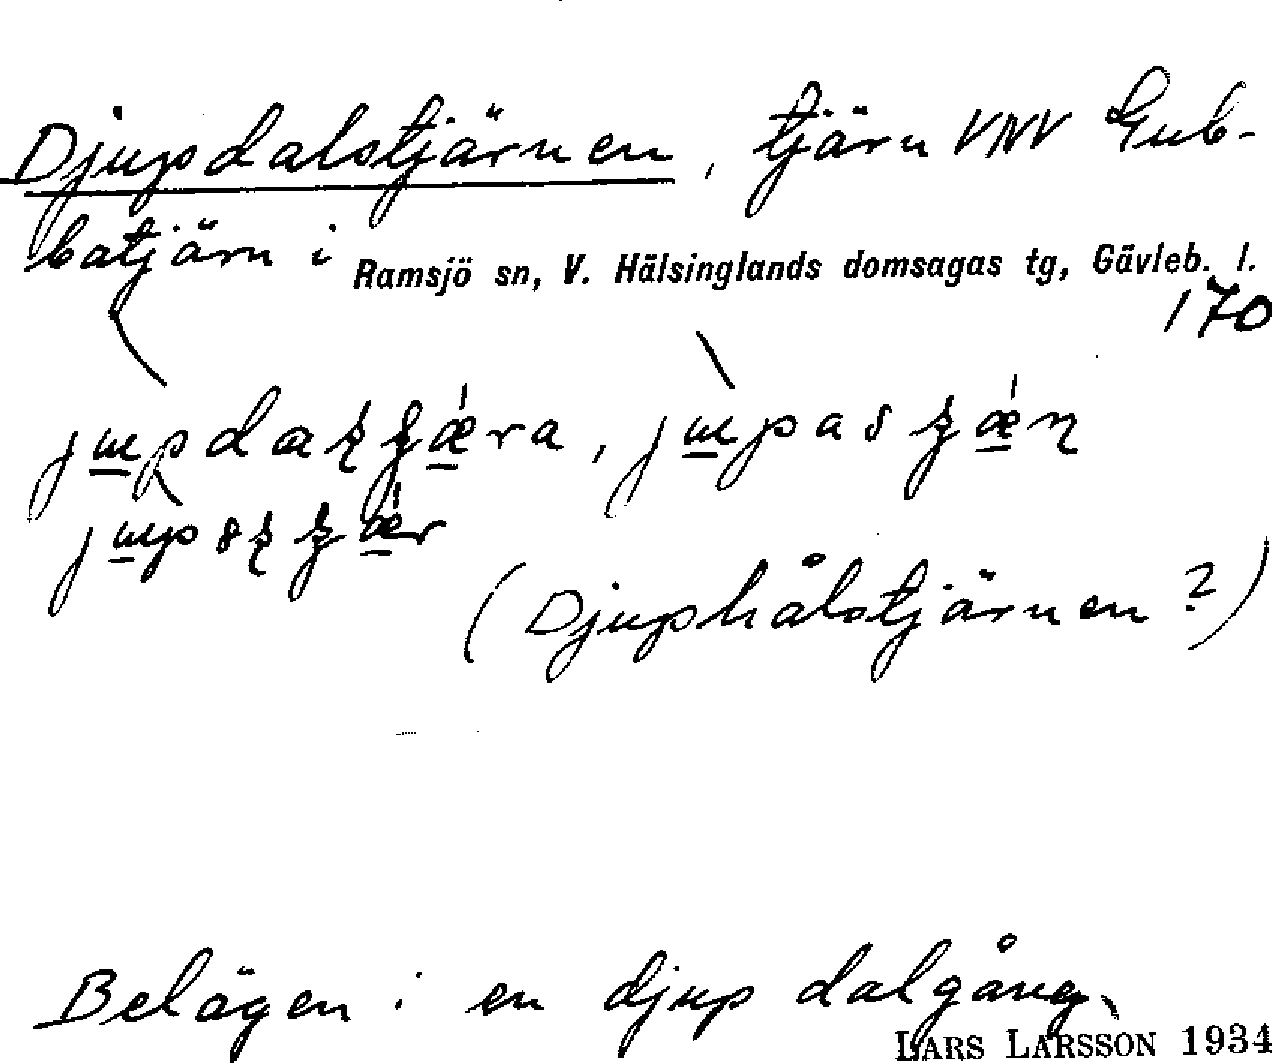 Djupdalstjärnen, tjärn VNV Gub-
batjärn i Ramsjö sn, V. Hälsinglands domsagas tg, Gävleb. l.
170
(Djuphålstjärnen?)
Belägen i en djup dalgång.
LARS LARSSON 1934